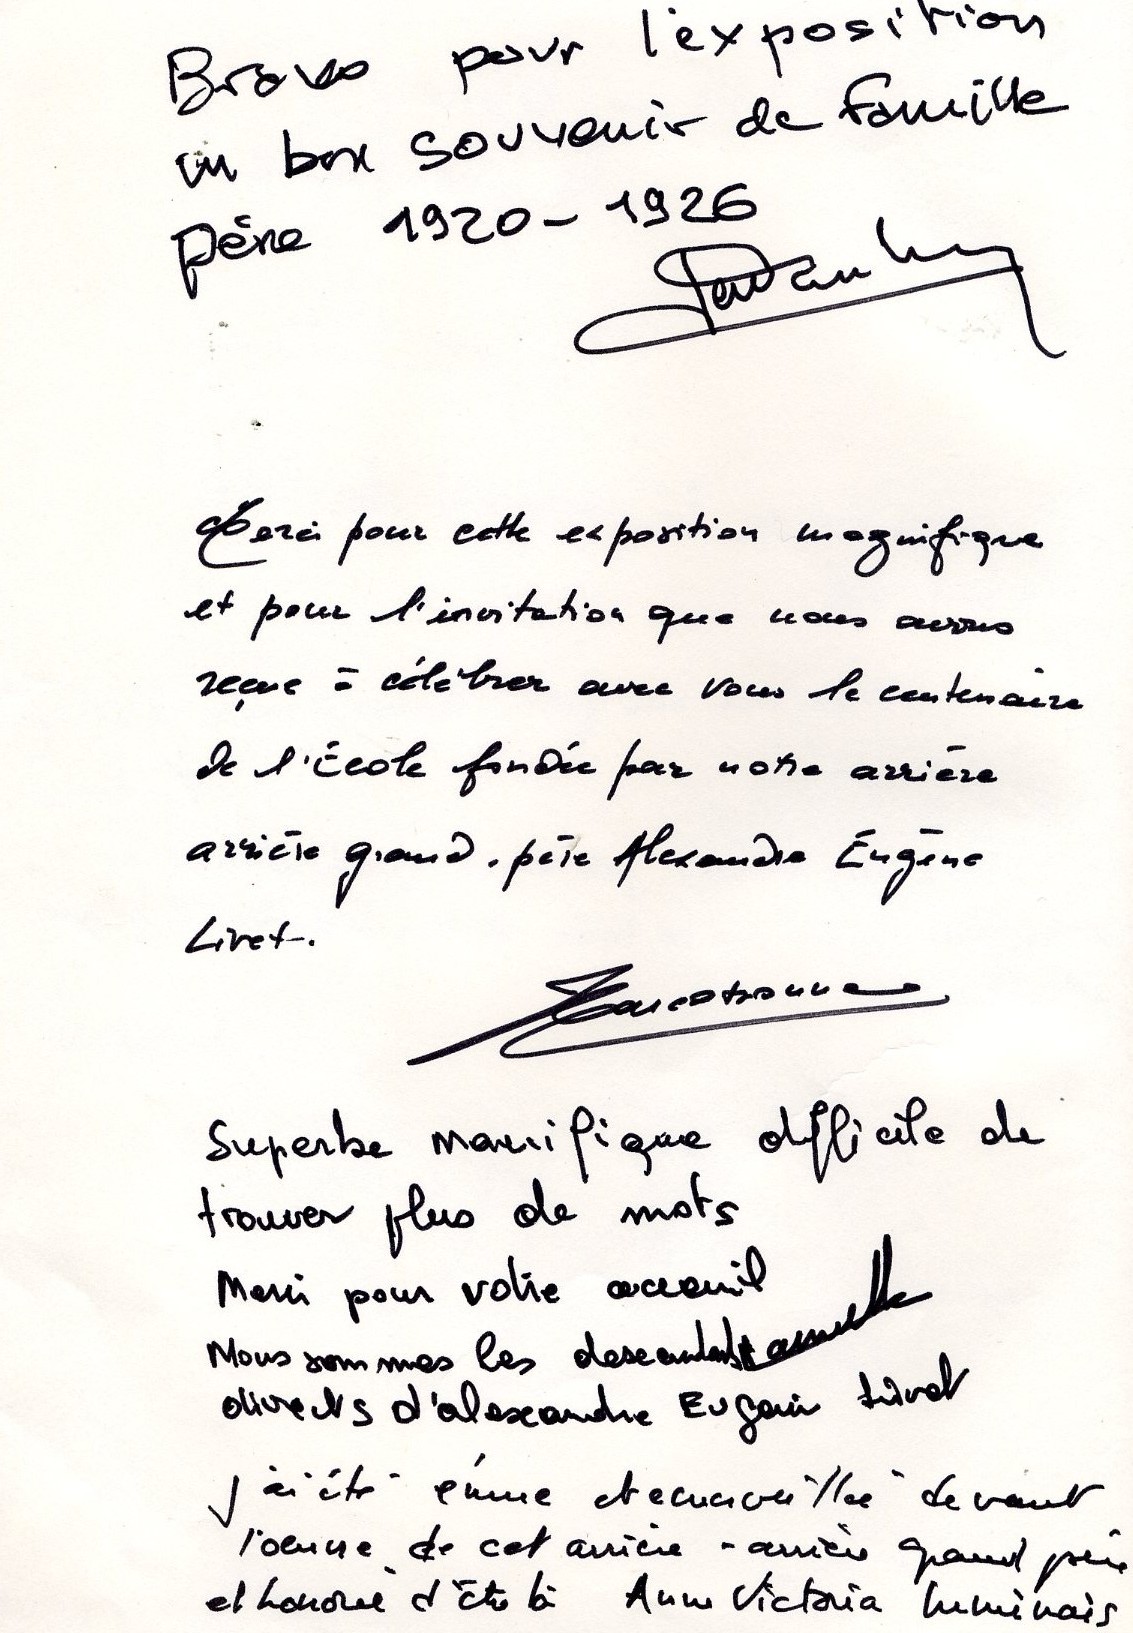 Bravo pour l'exposition
un bon souvenir de famille
père 1920 - 1926
Merci pour cette exposition magnifique
et pour l'invitation que nous avons
reçue à célébrer avec vous le centenaire
de l'École fondée par notre arrière
arrière grand-père Alexandre Eugène
Livet.
Superbe manifique difficile de
trouver plus de mots
Merci pour votre acceuil
Nous sommes les descendants
directs d'alexandre Eugain Livet
J'ai été émue et emerveillée devant
l'oeuvre de cet arrière - arrière grand père
et honorée d'être là Anne Victoria Luminais